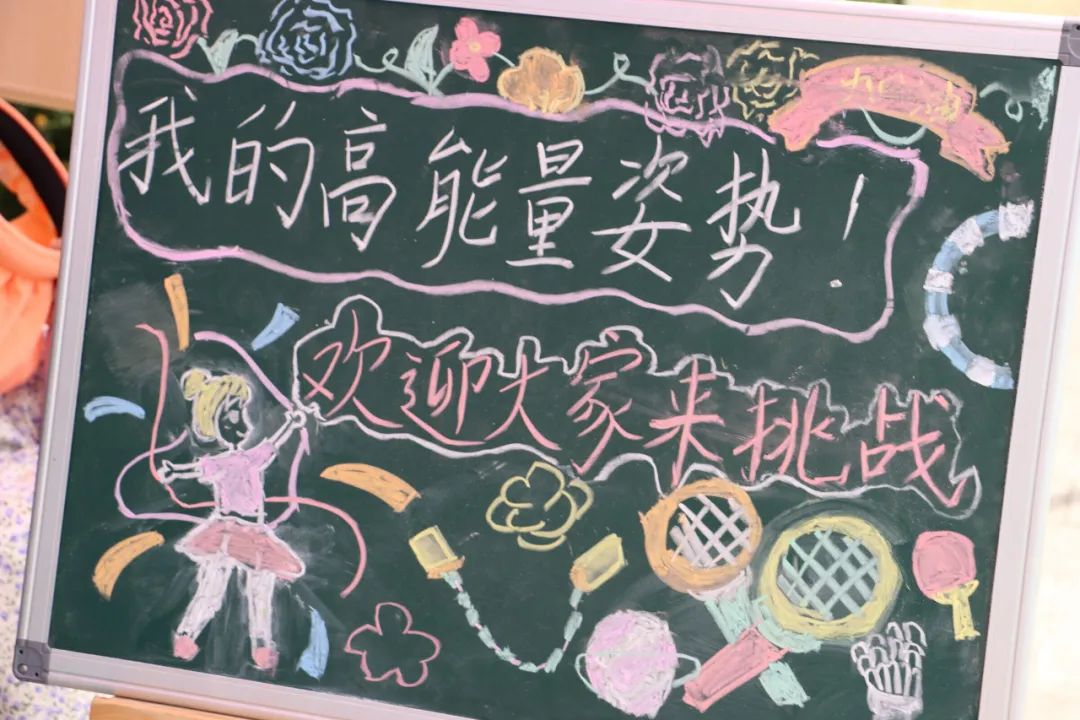 我的高能量姿势!
欢迎大家来挑战